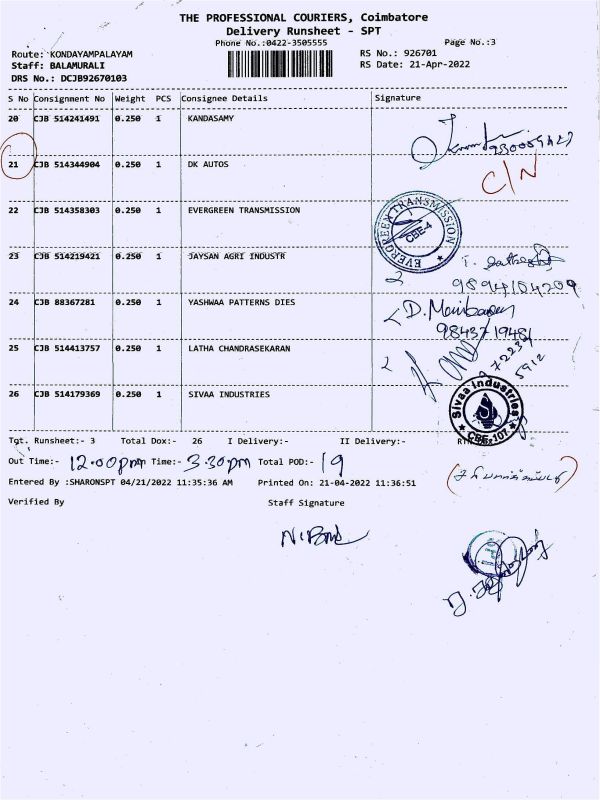 THE PROFESSIONAL COURIERS, Coimbatore
Delivery Runsheet - SPT
Phone No.:0422-3505555 Page No.:3
Route: KONDAYAMPALAYAM RS No.: 926701
Staff: BALAMURALI RS Date: 21-Apr-2022
DRS No.: DCJB92670103
S No Consignment No Weight PCS Consignee Details Signature
20 CJB 514241491 0.250 1 KANDASAMY
21 CJB 514344904 0.250 1 DK AUTOS C/N
22 CJB 514358303 0.250 1 EVERGREEN TRANSMISSION
EVERGREEN TRANSMISSION CBE-4
23 CJB 514219421 0.250 1 JAYSAN AGRI INDUSTR
9894104209
24 CJB 88367281 0.250 1 YASHWAA PATTERNS DIES
9843719481
25 CJB 514413757 0.250 1 LATHA CHANDRASEKARAN
26 CJB 514179369 0.250 1 SIVAA INDUSTRIES
Sivaa Industries CBE-107
Tgt. Runsheet:- 3 Total Dox:- 26 I Delivery:- II Delivery:-
Out Time:- 12.00pm Time:- 3.30pm Total POD:- 19
Entered By :SHARONSPT 04/21/2022 11:35:36 AM Printed On: 21-04-2022 11:36:51
Verified By Staff Signature